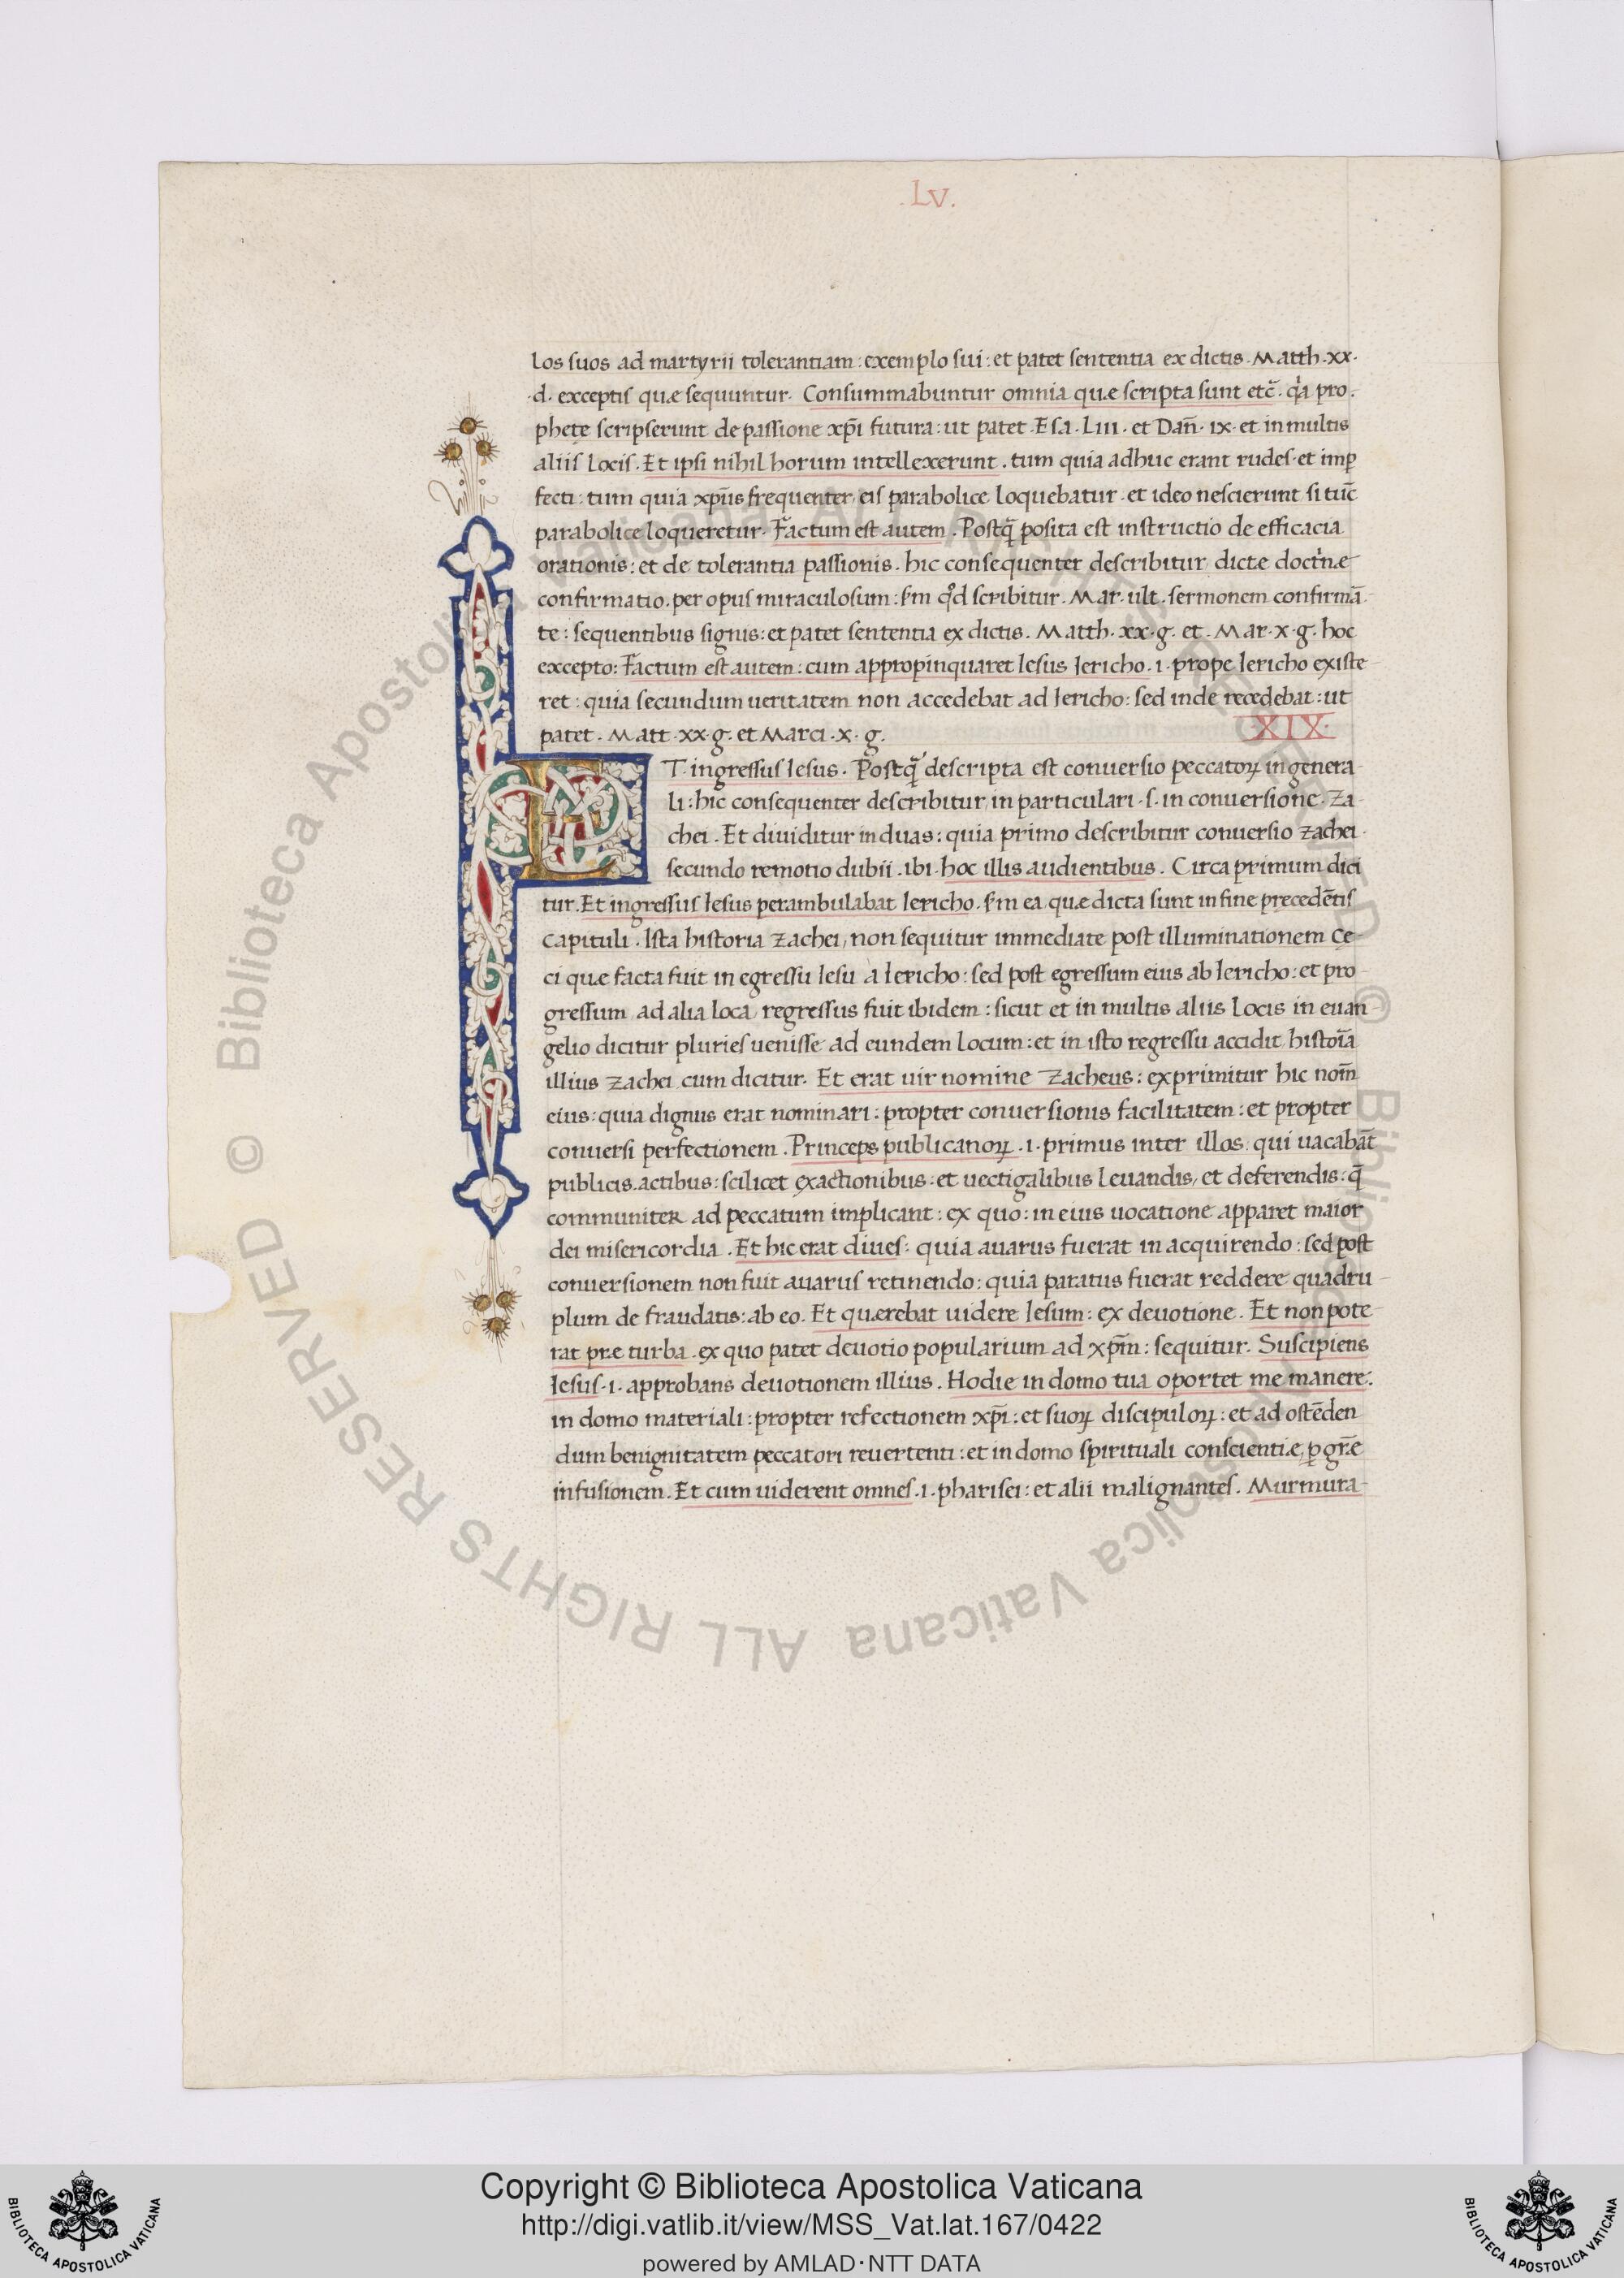 .LV.
los suos ad martyrii tolerantiam : exemplo sui : et patet sententia ex dictis . Matth . xx .
. d . exceptis quæ sequuntur . Consummabuntur omnia quæ scripta sunt etc̃ . qa pro .
phetę scripserunt de passione xp̃i futura : ut patet . Esa . LIII . et Dañ . IX . et in multis
aliis Locis . Et ipsi nihil horum intellexerunt . tum quia adhuc erant rudes . et imꝑ
fecti : tum quia xp̃us frequenter eis parabolice loquebatur . et ideo nescierunt si tuc̃
parabolice loqueretur . Factum est autem . Postq̃ posita est instructio de efficacia
orationis : et de tolerantia passionis . hic consequenter describitur dictæ doctnæ
confirmatio . per opus miraculosum : ẜm qd scribitur . Mar . ult . sermonem confirmã .
te : sequentibus signis : et patet sententia ex dictis . Matth . xx . g . et . Mar . x . g . hoc
excepto : Factum est autem : cum appropinquaret Iesus Iericho . i . prope Iericho existe
ret : quia secundum ueritatem non accedebat ad Iericho : sed inde recedebat : ut
patet . Matt . xx . g . et Marci . x . g .
XIX .
ET . ingressus Iesus . Postq̃ descripta est conuersio peccatoꝝ in genera
li : hic consequenter describitur in particulari . s . in conuersione . Za
chei . Et diuiditur in duas : quia primo describitur conuersio Zachei .
secundo remotio dubii . ibi . hoc illis audientibus . Circa primum dici
tur . Et ingressus Iesus perambulabat Iericho . ẜm ea quæ dicta sunt in fine precedẽtis
capituli . Ista historia Zachei , non sequitur immediate post illuminationem cę
ci quæ facta fuit in egressu Iesu a Iericho : sed post egressum eius ab Iericho : et pro
gressum ad alia loca regressus fuit ibidem : sicut et in multis aliis Locis in euan
gelio dicitur pluries uenisse ad eundem locum : et in isto regressu accidit histoĩa
illius Zachei cum dicitur . Et erat uir nomine Zacheus : exprimitur hic nom̃
eius : quia dignus erat nominari : propter conuersionis facilitatem : et propter
conuersi perfectionem . Princeps publicanoꝝ . i . primus inter illos qui uacabãt
publicis actibus : scilicet exactionibus : et uectigalibus leuandis , et deferendis : q̃
communiter ad peccatum implicant : ex quo : in eius uocatione apparet maior
dei misericordia . Et hic erat diues : quia auarus fuerat in acquirendo : sed post
conuersionem non fuit auarus retinendo : quia paratus fuerat reddere quadru
plum de fraudatis : ab eo . Et quærebat uidere Iesum : ex deuotione . Et non pote
rat præ turba . ex quo patet deuotio popularium ad xp̃m : sequitur . Suscipiens
Iesus . i . approbans deuotionem illius . Hodie in domo tua oportet me manere .
in domo materiali : propter refectionem xp̃i : et suoꝝ discipuloꝝ : et ad ostẽden
dum benignitatem peccatori reuertenti : et in domo spirituali conscientiæ , ꝑ gr̃æ
infusionem . Et cum uiderent omnes . i . pharisei : et alii malignantes . Murmura
© Biblioteca Apostolica Vaticana ALL RIGHTS RESERVED © Biblioteca Apostolica Vaticana ALL RIGHTS RESERVED
Copyright © Biblioteca Apostolica Vaticana
http://digi.vatlib.it/view/MSS_Vat.lat.167/0422
powered by AMLAD·NTT DATA
BIBLIOTECA APOSTOLICA VATICANA
BIBLIOTECA APOSTOLICA VATICANA